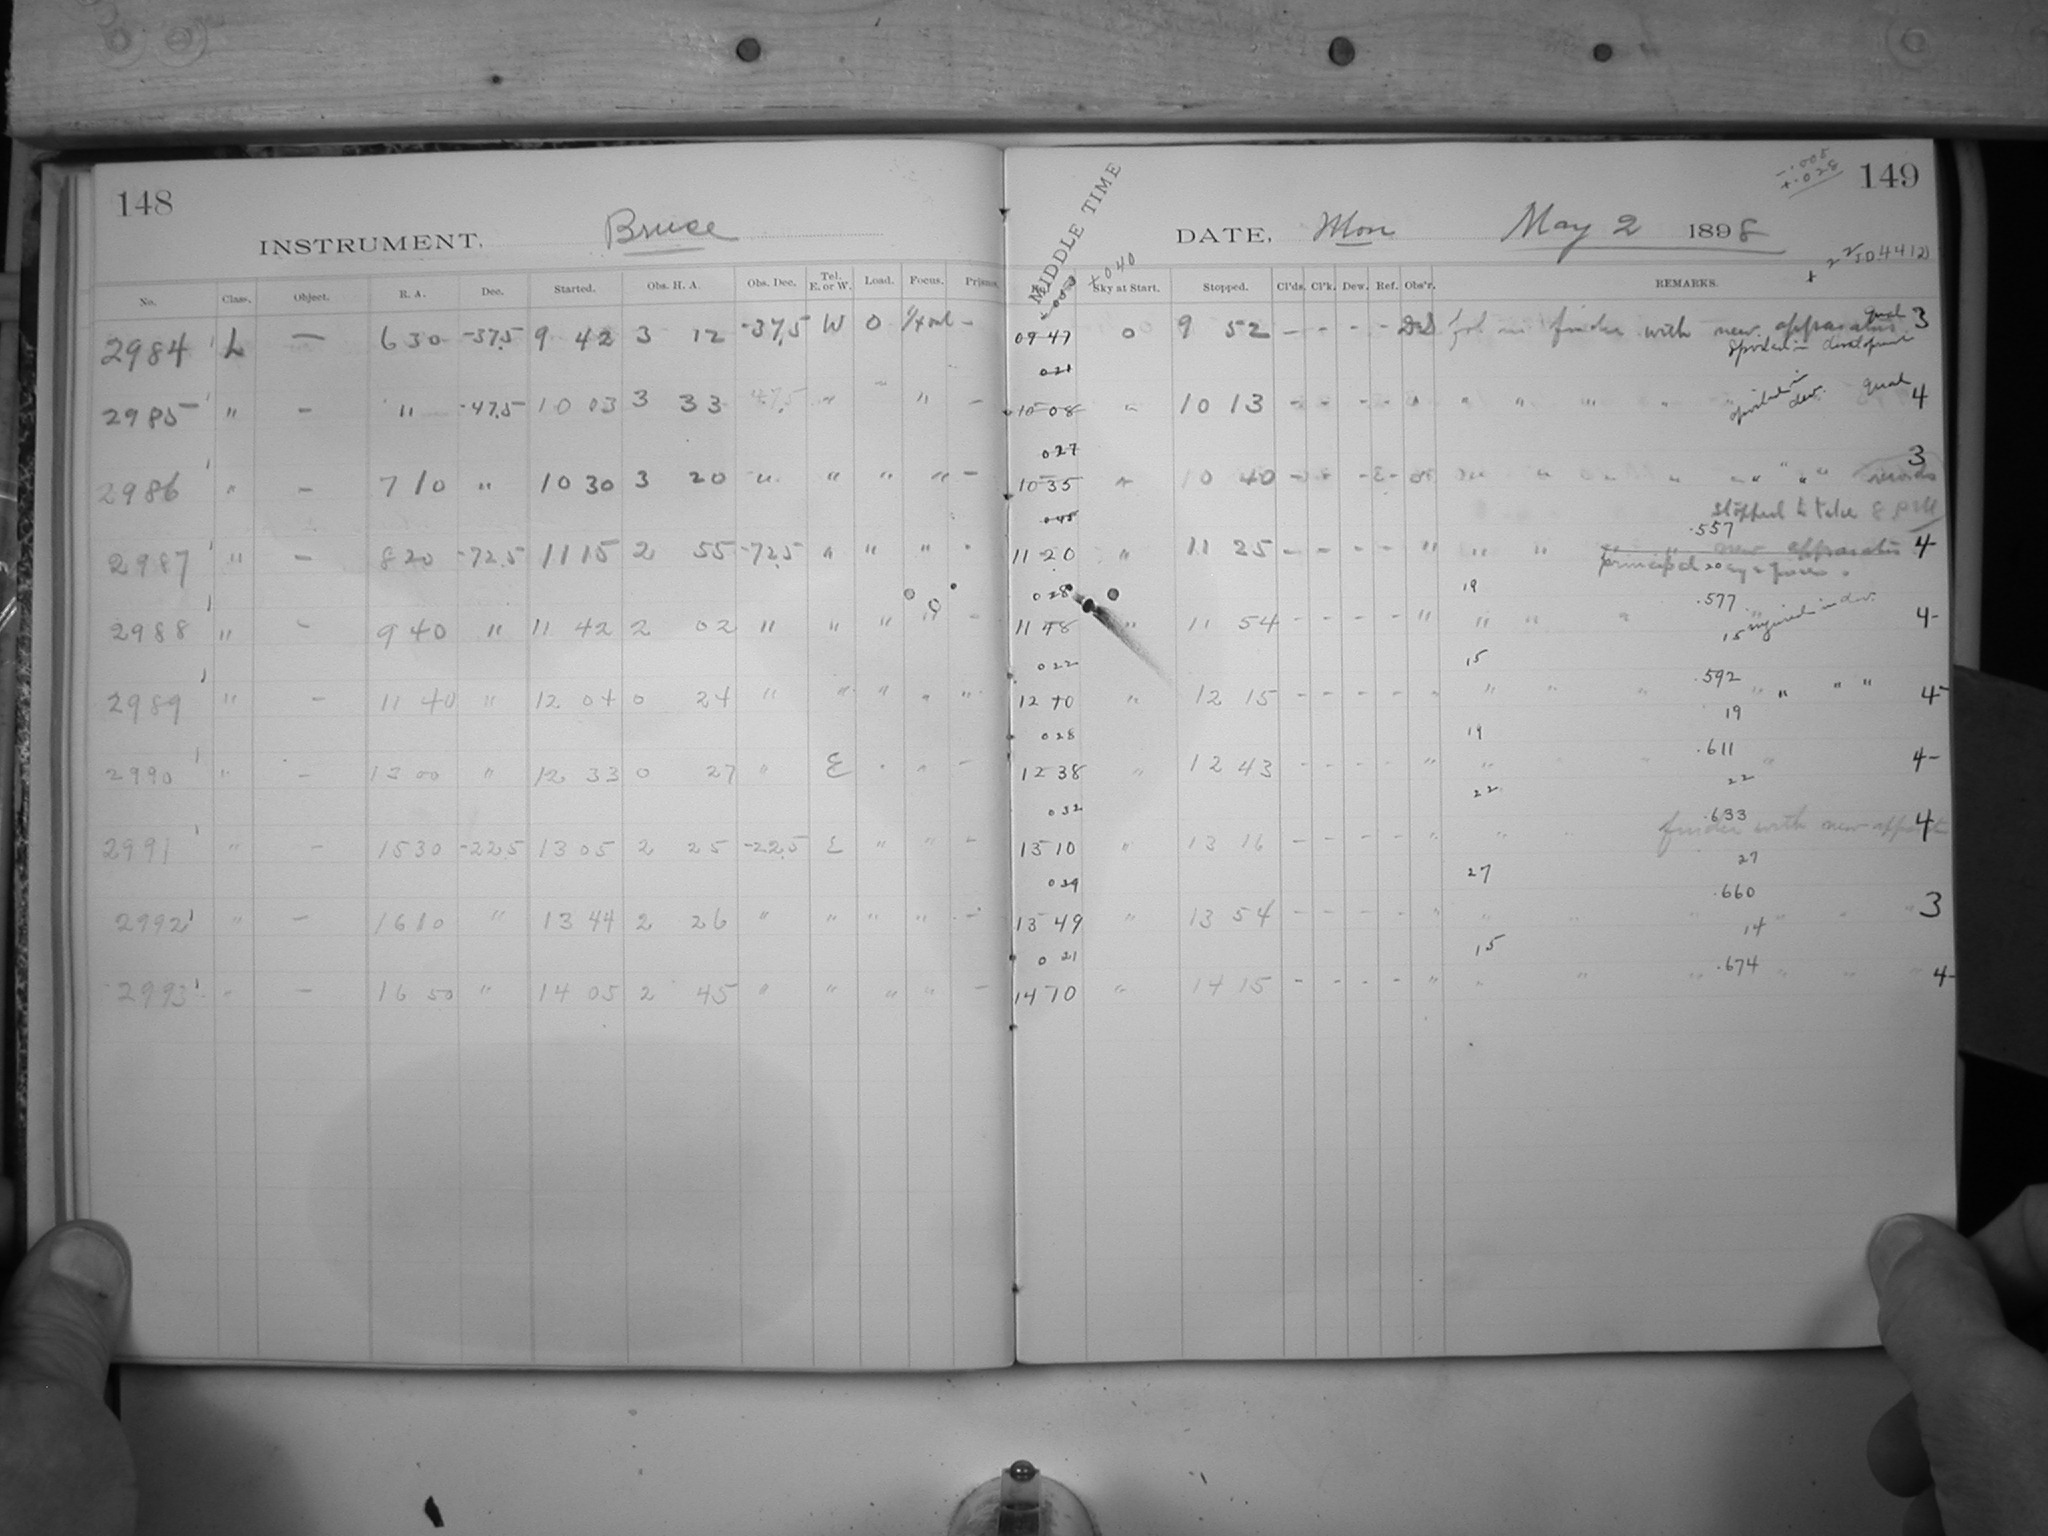 148
INSTRUMENT, Bruce
MIDDLE TIME
-.005
+.028
149
DATE, Mon May 2 1898
+.040
No. Class. Object. R. A. Dec. Started. Obs. H. A. Obs. Dec. Tel. E. or W. Load. Focus. Prisms. Sky at Start. Stopped. Cl'ds. Cl'k. Dew. Ref. Obs'r. REMARKS.
2984 L — 6 30 -37.5 9 42 3 12 -37.5 W 0 — 09 47 0 9 52 — - - - fol in finder with new apparatus Qual 3
Spoiled in development
021
2985 " — " -47.5 10 03 3 33 47.5 " " — 10 08 " 10 13 - - - - " " " " " spoiled in dev. Qual 4
027
2986 " — 7 10 " 10 30 3 20 " " " " — 10 35 " 10 40 " " " 3
stopped to take 8
045
.557
2987 " — 8 20 -72.5 11 15 2 55 -72.5 " " " - 11 20 " 11 25 - - - - " " " new apparatus 4
principal 20
028
19 .577
2988 " — 9 40 " 11 42 2 02 " " " " - 11 48 " 11 54 - - - - " " " " 15 injured in dev. 4-
022
15 .592
2989 " — 11 40 " 12 04 0 24 " " " " " 12 10 " 12 15 - - - - " " " " " " " 4-
028
19 19 .611
2990 " — 13 00 " 12 33 0 27 " E " " — 12 38 " 12 43 - - - - " " " 4-
032
22 22 .633
2991 " — 15 30 -22.5 13 05 2 25 -22.5 E " " - 13 10 " 13 16 - - - - " " finder with new 4
029
27 27 .660
2992 " — 16 10 " 13 44 2 26 " " " " - 13 49 " 13 54 - - - - " " " " " " " 3
021
15 14 .674
2993 " — 16 50 " 14 05 2 45 " " " " — 14 10 " 14 15 - - - - " " " " " " " 4-